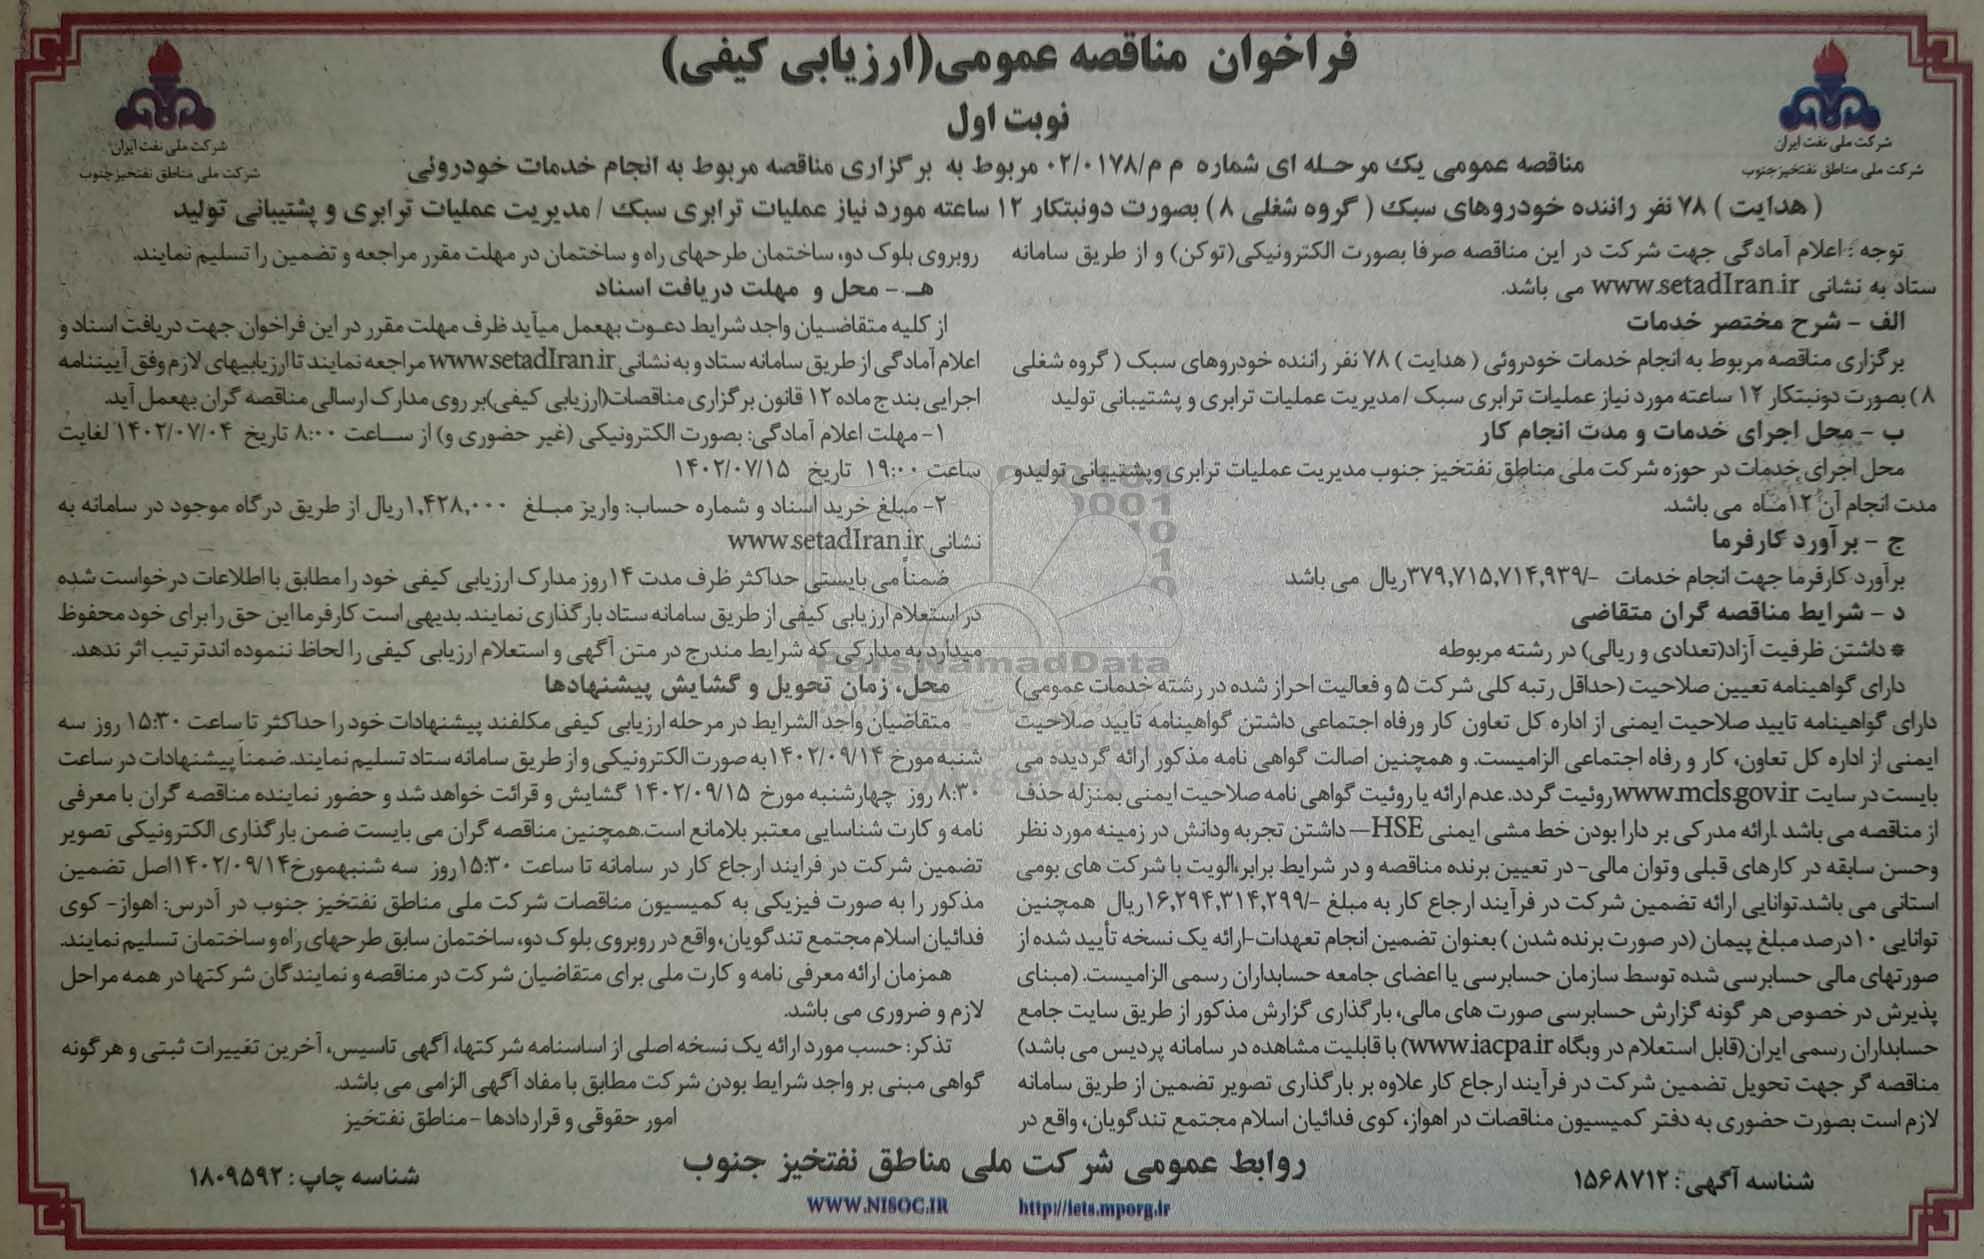 فراخوان مناقصه عمومی(ارزیابی کیفی)
نوبت اول
شرکت ملی نفت ایران
شرکت ملی مناطق نفتخیز جنوب
شرکت ملی نفت ایران
شرکت ملی مناطق نفتخیز جنوب
مناقصه عمومی یک مرحله ای شماره م م/۰۲/۰۱۷۸ مربوط به برگزاری مناقصه مربوط به انجام خدمات خودروئی
( هدایت ) ۷۸ نفر راننده خودروهای سبک ( گروه شغلی ۸ ) بصورت دونبتکار ۱۲ ساعته مورد نیاز عملیات ترابری سبک / مدیریت عملیات ترابری و پشتیبانی تولید
توجه : اعلام آمادگی جهت شرکت در این مناقصه صرفا بصورت الکترونیکی(توکن) و از طریق سامانه
ستاد به نشانی www.setadIran.ir می باشد.
الف - شرح مختصر خدمات
برگزاری مناقصه مربوط به انجام خدمات خودروئی ( هدایت ) ۷۸ نفر راننده خودروهای سبک ( گروه شغلی
۸ ) بصورت دونبتکار ۱۲ ساعته مورد نیاز عملیات ترابری سبک / مدیریت عملیات ترابری و پشتیبانی تولید
ب - محل اجرای خدمات و مدت انجام کار
محل اجرای خدمات در حوزه شرکت ملی مناطق نفتخیز جنوب مدیریت عملیات ترابری وپشتیبانی تولیدو
مدت انجام آن ۱۲ماه می باشد.
ج - برآورد کارفرما
برآورد کارفرما جهت انجام خدمات -/۳۷۹,۷۱۵,۷۱۴,۹۳۹ریال می باشد
د - شرایط مناقصه گران متقاضی
* داشتن ظرفیت آزاد(تعدادی و ریالی) در رشته مربوطه
دارای گواهینامه تعیین صلاحیت (حداقل رتبه کلی شرکت ۵ و فعالیت احراز شده در رشته خدمات عمومی)
دارای گواهینامه تایید صلاحیت ایمنی از اداره کل تعاون کار ورفاه اجتماعی داشتن گواهینامه تایید صلاحیت
ایمنی از اداره کل تعاون، کار و رفاه اجتماعی الزامیست. و همچنین اصالت گواهی نامه مذکور ارائه گردیده می
بایست در سایت www.mcls.gov.irروئیت گردد. عدم ارائه یا روئیت گواهی نامه صلاحیت ایمنی بمنزله حذف
از مناقصه می باشد .ارائه مدرکی بر دارا بودن خط مشی ایمنی HSE– داشتن تجربه ودانش در زمینه مورد نظر
وحسن سابقه در کارهای قبلی وتوان مالی- در تعیین برنده مناقصه و در شرایط برابر،الویت با شرکت های بومی
استانی می باشد.توانایی ارائه تضمین شرکت در فرآیند ارجاع کار به مبلغ -/۱۶,۲۹۴,۳۱۴,۲۹۹ریال همچنین
توانایی ۱۰درصد مبلغ پیمان (در صورت برنده شدن ) بعنوان تضمین انجام تعهدات-ارائه یک نسخه تأیید شده از
صورتهای مالی حسابرسی شده توسط سازمان حسابرسی یا اعضای جامعه حسابداران رسمی الزامیست. (مبنای
پذیرش در خصوص هر گونه گزارش حسابرسی صورت های مالی، بارگذاری گزارش مذکور از طریق سایت جامع
حسابداران رسمی ایران(قابل استعلام در وبگاه www.iacpa.ir) با قابلیت مشاهده در سامانه پردیس می باشد)
مناقصه گر جهت تحویل تضمین شرکت در فرآیند ارجاع کار علاوه بر بارگذاری تصویر تضمین از طریق سامانه
لازم است بصورت حضوری به دفتر کمیسیون مناقصات در اهواز، کوی فدائیان اسلام مجتمع تندگویان، واقع در
روبروی بلوک دو، ساختمان طرحهای راه و ساختمان در مهلت مقرر مراجعه و تضمین را تسلیم نمایند.
هـ - محل و مهلت دریافت اسناد
از کلیه متقاضیان واجد شرایط دعوت بهعمل میآید ظرف مهلت مقرر در این فراخوان جهت دریافت اسناد و
اعلام آمادگی از طریق سامانه ستاد و به نشانی www.setadIran.ir مراجعه نمایند تا ارزیابیهای لازم وفق آییننامه
اجرایی بند ج ماده ۱۲ قانون برگزاری مناقصات(ارزیابی کیفی)بر روی مدارک ارسالی مناقصه گران بهعمل آید.
۱- مهلت اعلام آمادگی: بصورت الکترونیکی (غیر حضوری و) از ساعت ۸:۰۰ تاریخ ۱۴۰۲/۰۷/۰۴ لغایت
ساعت ۱۹:۰۰ تاریخ ۱۴۰۲/۰۷/۱۵
۲- مبلغ خرید اسناد و شماره حساب: واریز مبلغ ۱,۴۲۸,۰۰۰ریال از طریق درگاه موجود در سامانه به
نشانی www.setadIran.ir
ضمناً می بایستی حداکثر ظرف مدت ۱۴روز مدارک ارزیابی کیفی خود را مطابق با اطلاعات درخواست شده
در استعلام ارزیابی کیفی از طریق سامانه ستاد بارگذاری نمایند. بدیهی است کارفرما این حق را برای خود محفوظ
میدارد به مدارکی که شرایط مندرج در متن آگهی و استعلام ارزیابی کیفی را لحاظ ننموده اندترتیب اثر ندهد.
محل، زمان تحویل و گشایش پیشنهادها
متقاضیان واجد الشرایط در مرحله ارزیابی کیفی مکلفند پیشنهادات خود را حداکثر تا ساعت ۱۵:۳۰ روز سه
شنبه مورخ ۱۴۰۲/۰۹/۱۴به صورت الکترونیکی و از طریق سامانه ستاد تسلیم نمایند. ضمناً پیشنهادات در ساعت
۸:۳۰ روز چهارشنبه مورخ ۱۴۰۲/۰۹/۱۵ گشایش و قرائت خواهد شد و حضور نماینده مناقصه گران با معرفی
نامه و کارت شناسایی معتبر بلامانع است.همچنین مناقصه گران می بایست ضمن بارگذاری الکترونیکی تصویر
تضمین شرکت در فرایند ارجاع کار در سامانه تا ساعت ۱۵:۳۰روز سه شنبهمورخ۱۴۰۲/۰۹/۱۴اصل تضمین
مذکور را به صورت فیزیکی به کمیسیون مناقصات شرکت ملی مناطق نفتخیز جنوب در آدرس: اهواز- کوی
فدائیان اسلام مجتمع تندگویان، واقع در روبروی بلوک دو، ساختمان سابق طرحهای راه و ساختمان تسلیم نمایند.
همزمان ارائه معرفی نامه و کارت ملی برای متقاضیان شرکت در مناقصه و نمایندگان شرکتها در همه مراحل
لازم و ضروری می باشد.
تذکر: حسب مورد ارائه یک نسخه اصلی از اساسنامه شرکتها، آگهی تاسیس، آخرین تغییرات ثبتی و هرگونه
گواهی مبنی بر واجد شرایط بودن شرکت مطابق با مفاد آگهی الزامی می باشد.
امور حقوقی و قراردادها - مناطق نفتخیز
روابط عمومی شرکت ملی مناطق نفتخیز جنوب
شناسه آگهی: ۱۵۶۸۷۱۲
شناسه چاپ : ۱۸۰۹۵۹۲
WWW.NISOC.IR http://iets.mporg.ir
ParsNamadData